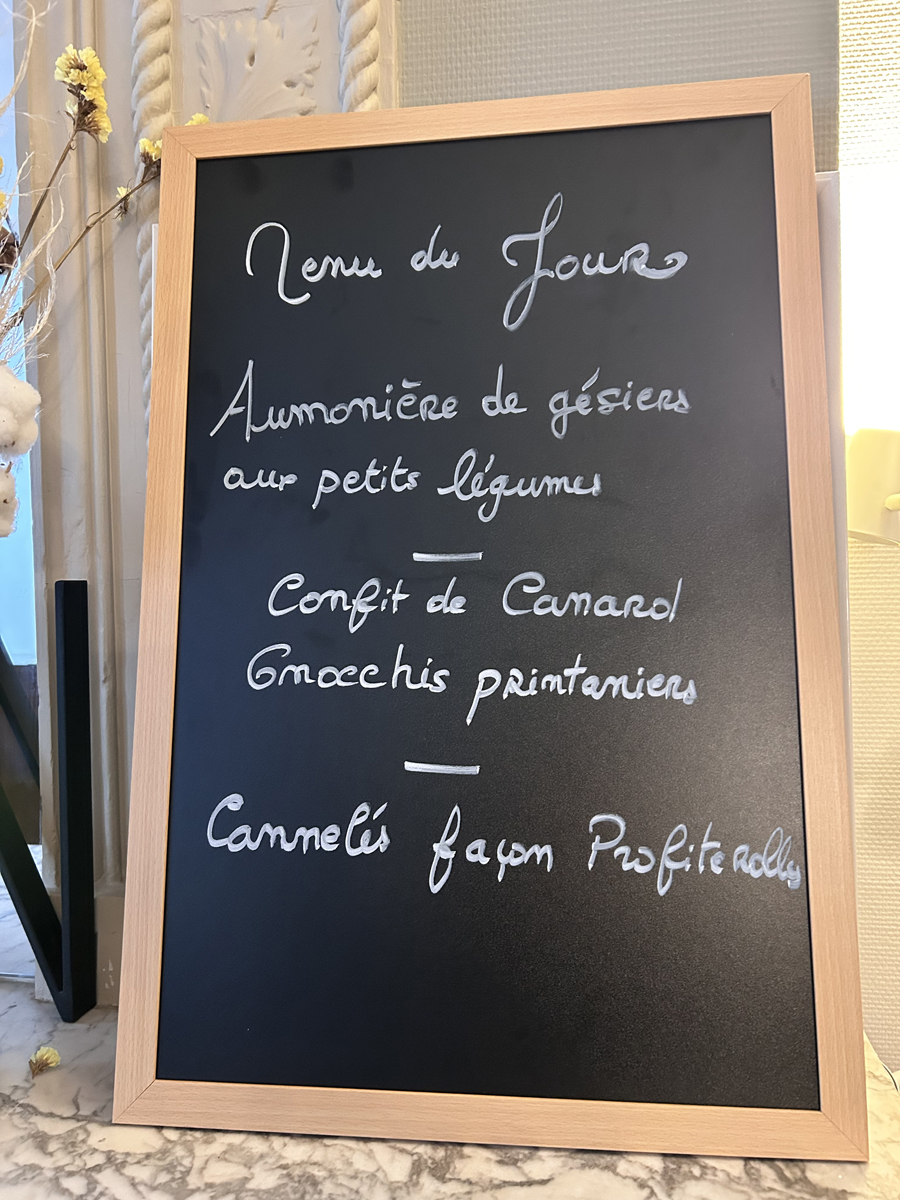 Menu du Jour
Aumonière de gésiers
aux petits légumes
Confit de Canard
Gnocchis printaniers
Cannelés façon Profiterolles